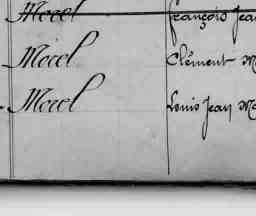 Morel François Jean
Morel Clément M
Morel Louis Jean Mo